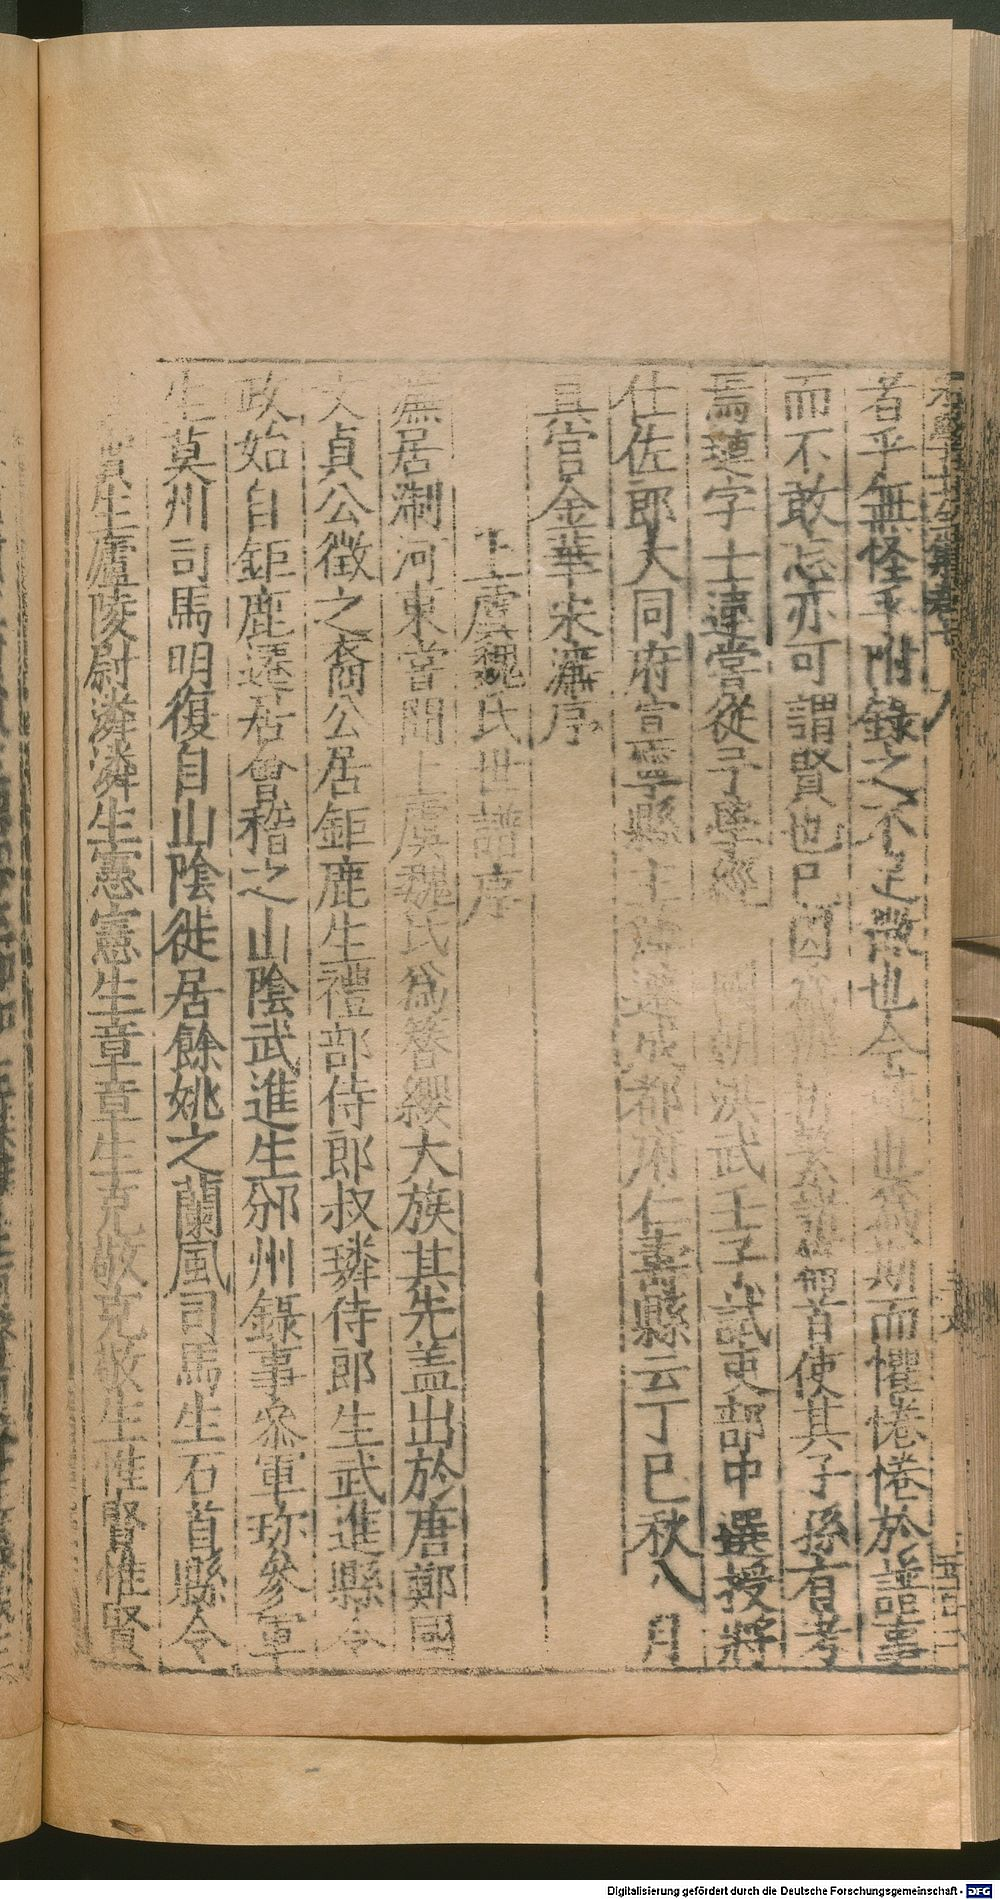 者乎無怪乎附錄之不足徵也今連也爲斯而懼惓惓於譜書
而不敢忘亦可謂賢也已因爲 使其子孫有考
焉連字士連嘗從予學經 國朝洪武壬子試吏部中選授將
仕佐郎大同府宣寧縣主簿遷成都府仁壽縣云丁巳秋八月
具官金華宋濂序
上虞魏氏世譜序
濂居淛河東嘗聞上虞魏氏爲簪纓大族其先盖出於唐鄭國
文貞公徵之裔公居鉅鹿生禮部侍郎叔璘侍郎生武進縣令
政始自鉅鹿遷居會稽之山陰武進生邠州錄事叅軍珎參軍
生莫州司馬明復自山陰徙居餘姚之蘭風司馬生石首縣令
賓生廬陵尉潾潾生憲憲生章章生克敬克敬生惟賢惟賢
Digitalisierung gefördert durch die Deutsche Forschungsgemeinschaft - DFG